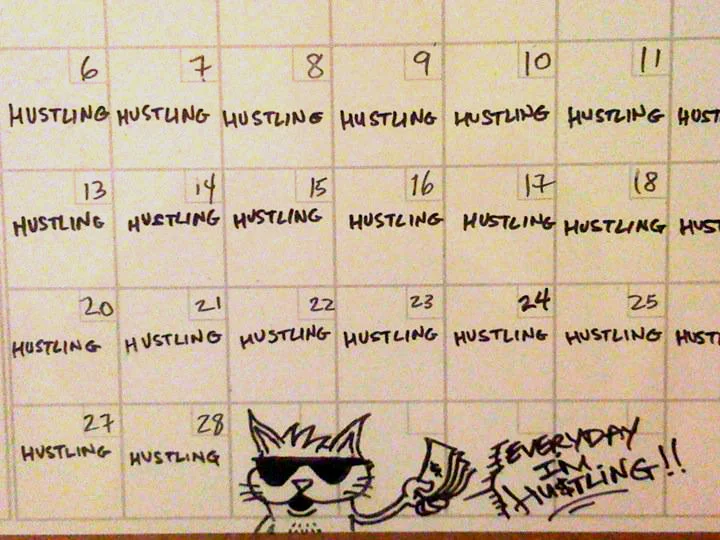 6 7 8 9 10 11
HUSTLING HUSTLING HUSTLING HUSTLING HUSTLING HUSTLING HUST
13 14 15 16 17 18
HUSTLING HUSTLING HUSTLING HUSTLING HUSTLING HUSTLING HUS
20 21 22 23 24 25
HUSTLING HUSTLING HUSTLING HUSTLING HUSTLING HUSTLING HUST
27 28
HUSTLING HUSTLING
EVERYDAY
IM
HU$TLiNG!!